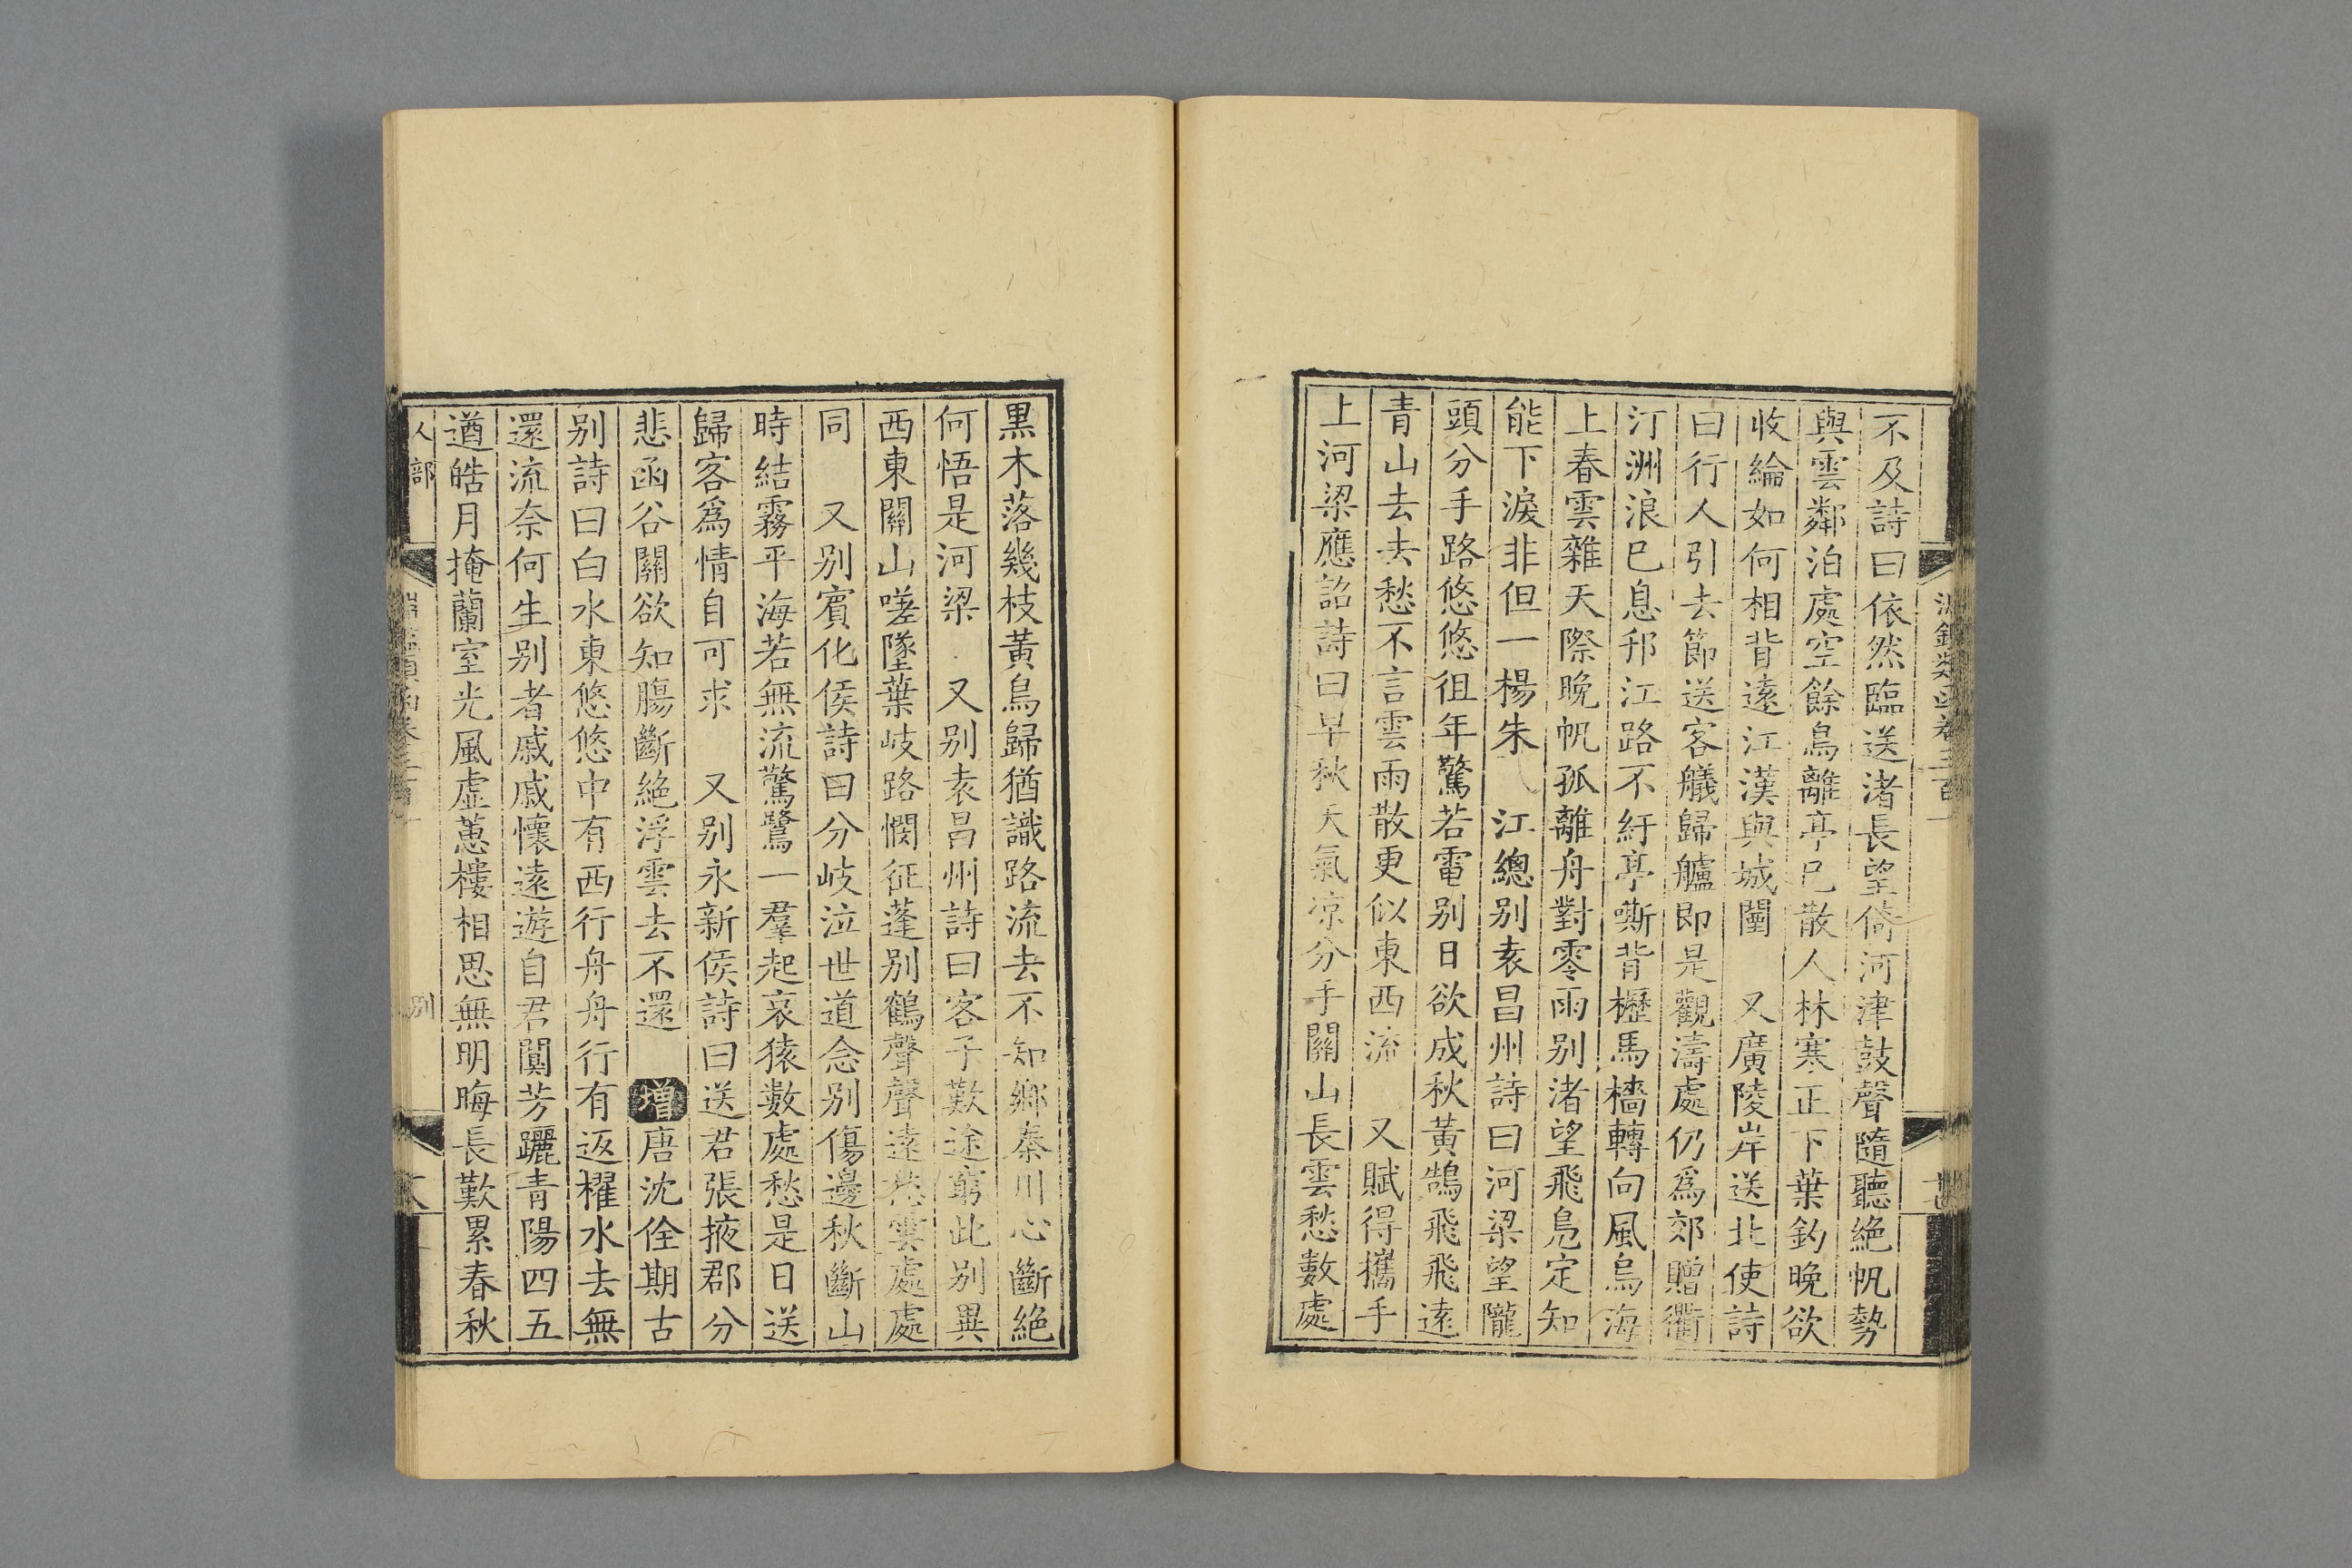 不及詩曰依然臨送渚長望倚河津鼓聲隨聽絶帆勢
與雲鄰泊處空餘鳥離亭已散人林寒正下葉釣晚欲
收綸如何相背遠江漢與城闉 又廣陵岸送北使詩
曰行人引去節送客艤歸艫即是觀濤處仍爲郊贈衢
汀洲浪已息邗江路不紆亭嘶背櫪馬檣轉向風烏海
上春雲雜天際晚帆孤離舟對零雨别渚望飛鳬定知
能下淚非但一楊朱 江總别袁昌州詩曰河梁望隴
頭分手路悠悠徂年驚若電别日欲成秋黃鵠飛飛遠
青山去去愁不言雲雨散更似東西流 又賦得攜手
上河梁應詔詩曰早秋天氣凉分手關山長雲愁數處
黒木落幾枝黃鳥歸猶識路流去不知鄉秦川心斷絶
何悟是河梁 又别袁昌州詩曰客子歎途窮此别異
西東關山嗟墜葉岐路憫征蓬别鶴聲聲遠愁雲處處
同 又别賓化侯詩曰分岐泣世道念别傷邊秋斷山
時結霧平海若無流驚鷺一羣起哀猿數處愁是日送
歸客爲情自可求 又别永新侯詩曰送君張掖郡分
悲函谷關欲知腸斷絶浮雲去不還 增唐沈佺期古
别詩曰白水東悠悠中有西行舟舟行有返櫂水去無
還流奈何生别者戚戚懷遠遊自君闃芳躧青陽四五
遒皓月掩蘭室光風虛蕙樓相思無明晦長歎累春秋
人部
别